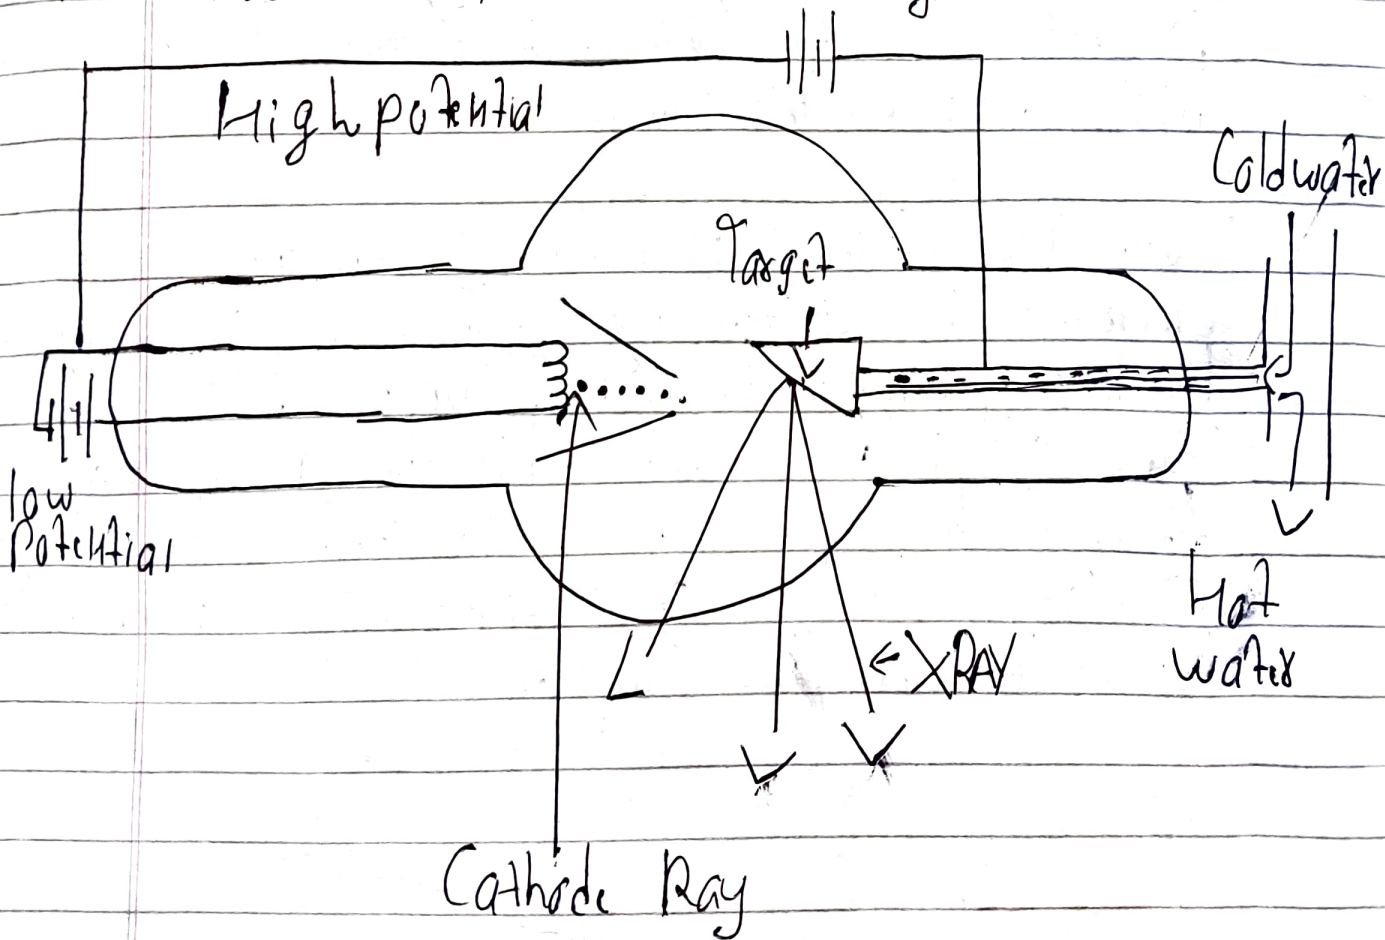 High potential
Cold water
Target
low
Potential
Hot
water
XRAY
Cathode Ray